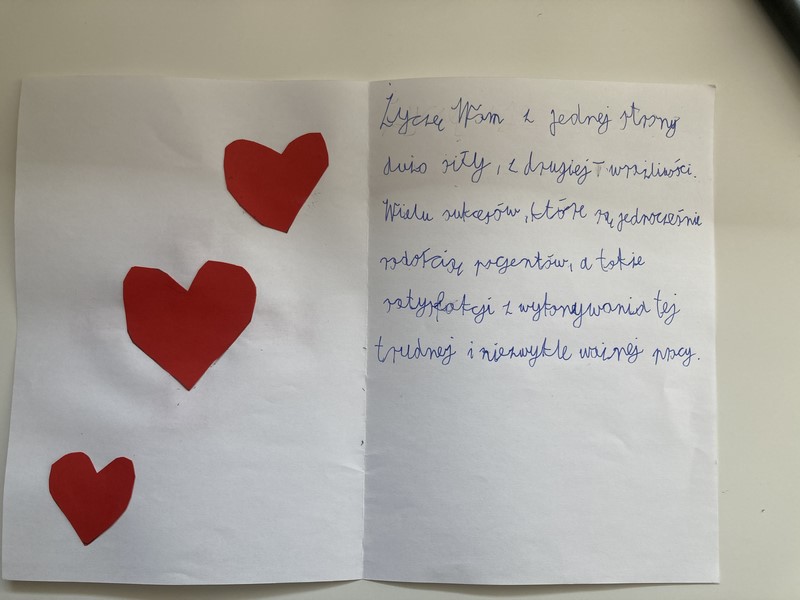 Życzę Wam z jednej strony
dużo siły, z drugiej - wrażliwości.
Wielu sukcesów, które są jednocześnie
radością pacjentów, a także
satysfakcji z wykonywania tej
trudnej i niezwykle ważnej pracy.